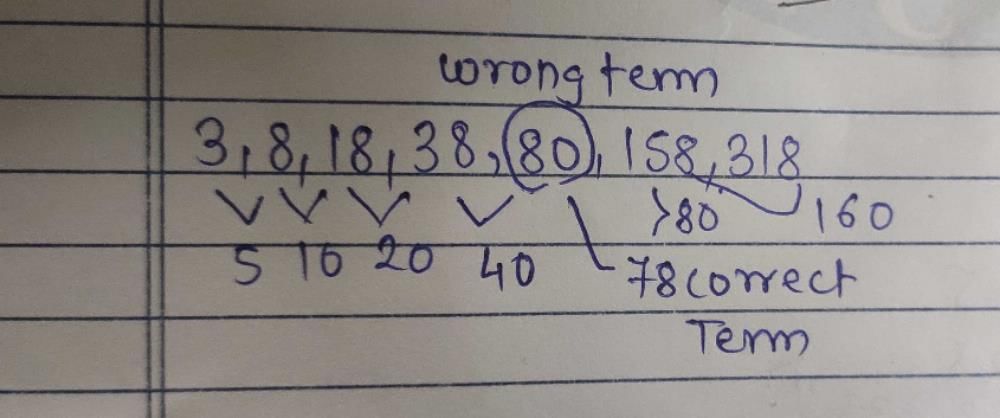 wrong term
3, 8, 18, 38, 80, 158, 318
>80 160
5 10 20 40 78 correct
Term